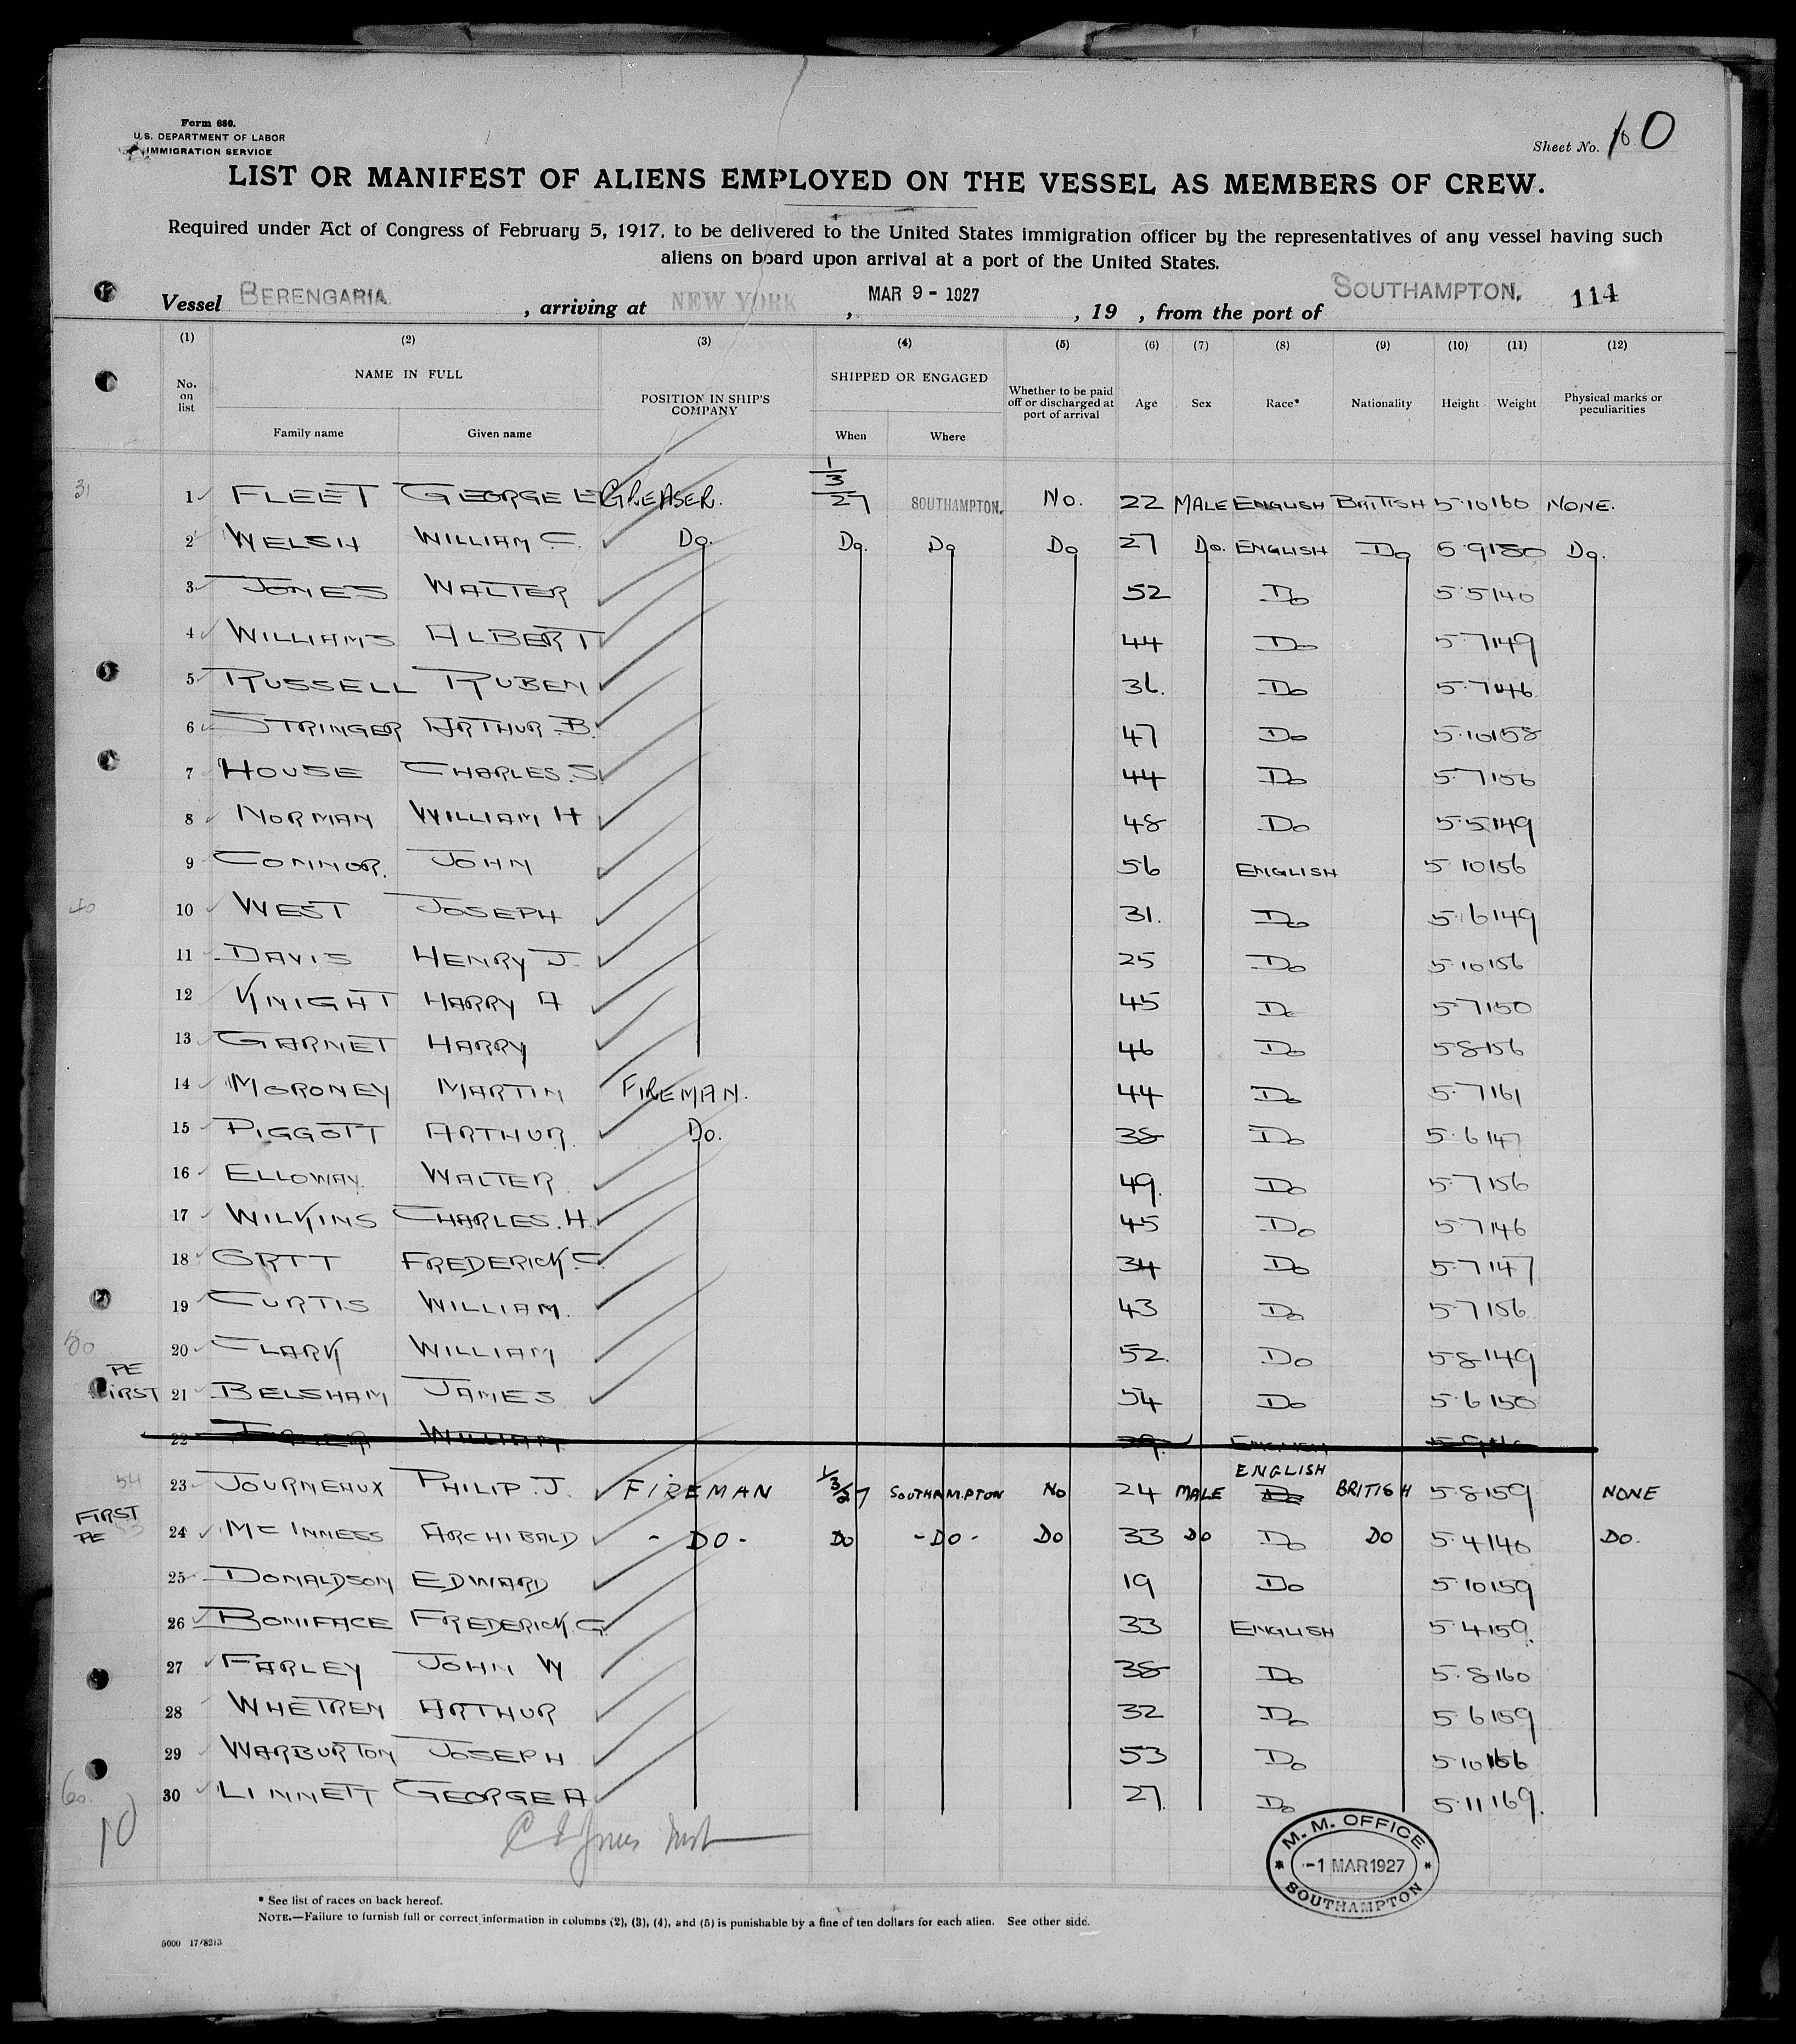 Form 680.
U.S. DEPARTMENT OF LABOR
IMMIGRATION SERVICE
Sheet No. 10
LIST OR MANIFEST OF ALIENS EMPLOYED ON THE VESSEL AS MEMBERS OF CREW.
Required under Act of Congress of February 5, 1917, to be delivered to the United States immigration officer by the representatives of any vessel having such
aliens on board upon arrival at a port of the United States.
Vessel BERENGARIA, arriving at NEW YORK, MAR 9 - 1927, 19 , from the port of SOUTHAMPTON. 114
(1) (2) (3) (4) (5) (6) (7) (8) (9) (10) (11) (12)
No. on list NAME IN FULL Family name Given name POSITION IN SHIP'S COMPANY SHIPPED OR ENGAGED When Where Whether to be paid off or discharged at port of arrival Age Sex Race* Nationality Height Weight Physical marks or peculiarities
31 1 FLEET GEORGE E GREASER. 1/3/27 SOUTHAMPTON. No. 22 MALE ENGLISH BRITISH 5·10 160 NONE.
2 WELSH WILLIAM C. Do. Do. Do Do 27 Do. ENGLISH Do 5 9 150 Do.
3 JONES WALTER 52 Do 5·5 140
4 WILLIAMS ALBERT 44 Do 5·7 149
5 RUSSELL RUBEN 36. Do 5·7 146
6 STRINGER ARTHUR B. 47 Do 5·10 158
7 HOUSE CHARLES. S 44 Do 5·7 156
8 NORMAN WILLIAM H 48 Do 5·5 149
9 CONNOR. JOHN 56 ENGLISH 5 10 156
40 10 WEST JOSEPH 31. Do 5·6 149
11 DAVIS HENRY J. 25 Do 5·10 156
12 KNIGHT HARRY A 45 Do 5·7 150
13 GARNET HARRY 46 Do 5·8 156
14 MORONEY MARTIN FIREMAN. 44 Do 5·7 161
15 PIGGOTT ARTHUR. Do. 38 Do 5·6 147
16 ELLOWAY. WALTER. 49. Do 5·7 156
17 WILKINS CHARLES. H. 45 Do 5·7 146
18 ORTT FREDERICK. C. 34 Do 5·7 147
19 CURTIS WILLIAM. 43 Do 5·7 156
50 20 CLARK WILLIAM 52. Do 5·8 149
PE FIRST 21 BELSHAM JAMES 54 Do 5·6 150
22 WILLIAM 39. ENGLISH
54 23 JOURNEAUX PHILIP. J. FIREMAN 1/3/27 SOUTHAMPTON No 24 MALE ENGLISH Do BRITISH 5·8 159 NONE
FIRST PE 53 24 Mc INNESS ARCHIBALD - DO - DO - DO - DO 33 DO Do DO 5·4 140 DO.
25 DONALDSON EDWARD 19 Do 5·10 159
26 BONIFACE FREDERICK. G. 33 ENGLISH 5·4 159.
27 FARLEY JOHN W 38 Do 5·8 160
28 WHETREN ARTHUR 32 Do 5·6 159
29 WARBURTON JOSEPH 53 Do 5·10 166
60. 30 LINNETT GEORGE A 27. Do 5·11 169.
10
M. M. OFFICE
-1 MAR 1927
SOUTHAMPTON
* See list of races on back hereof.
NOTE.—Failure to furnish full or correct information in columns (2), (3), (4), and (5) is punishable by a fine of ten dollars for each alien. See other side.
5000 17/8213